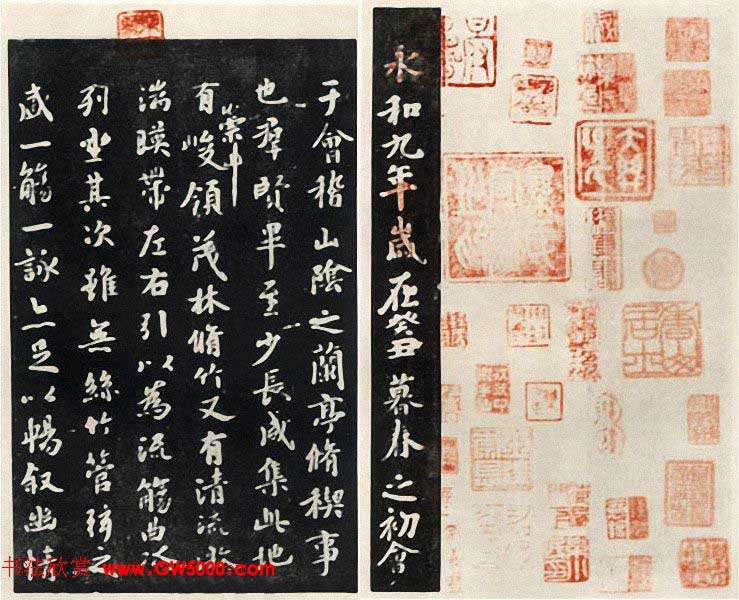 永和九年歲在癸丑暮春之初會
于會稽山陰之蘭亭脩稧事
也羣賢畢至少長咸集此地
有崇山峻領茂林脩竹又有清流激
湍暎帶左右引以為流觴曲水
列坐其次雖無絲竹管弦之
盛一觴一詠亦足以暢叙幽情
书法欣赏 www.GW5000.com